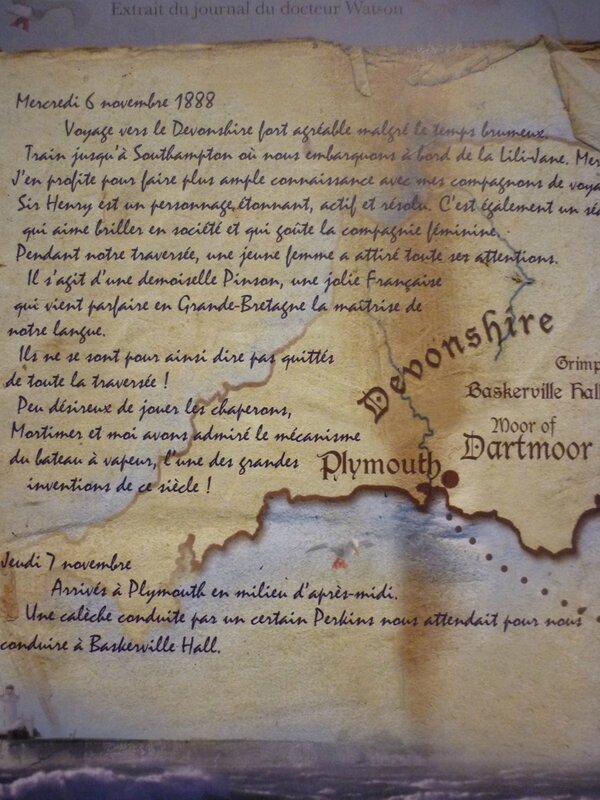 Extrait du journal du docteur Watson
Mercredi 6 novembre 1888
Voyage vers le Devonshire fort agréable malgré le temps brumeux.
Train jusqu'à Southampton où nous embarquons à bord de la Lili-Jane. Mer
J'en profite pour faire plus ample connaissance avec mes compagnons de voya
Sir Henry est un personnage étonnant, actif et résolu. C'est également un sé
qui aime briller en société et qui goûte la compagnie féminine.
Pendant notre traversée, une jeune femme a attiré toute ses attentions.
Il s'agit d'une demoiselle Pinson, une jolie Française
qui vient parfaire en Grande-Bretagne la maîtrise de
notre langue.
Ils ne se sont pour ainsi dire pas quittés
de toute la traversée !
Peu désireux de jouer les chaperons,
Mortimer et moi avons admiré le mécanisme
du bateau à vapeur, l'une des grandes
inventions de ce siècle !
Devonshire
Grimp
Baskerville Hall
Moor of
Dartmoor
Plymouth
Jeudi 7 novembre
Arrivés à Plymouth en milieu d'après-midi.
Une calèche conduite par un certain Perkins nous attendait pour nous
conduire à Baskerville Hall.